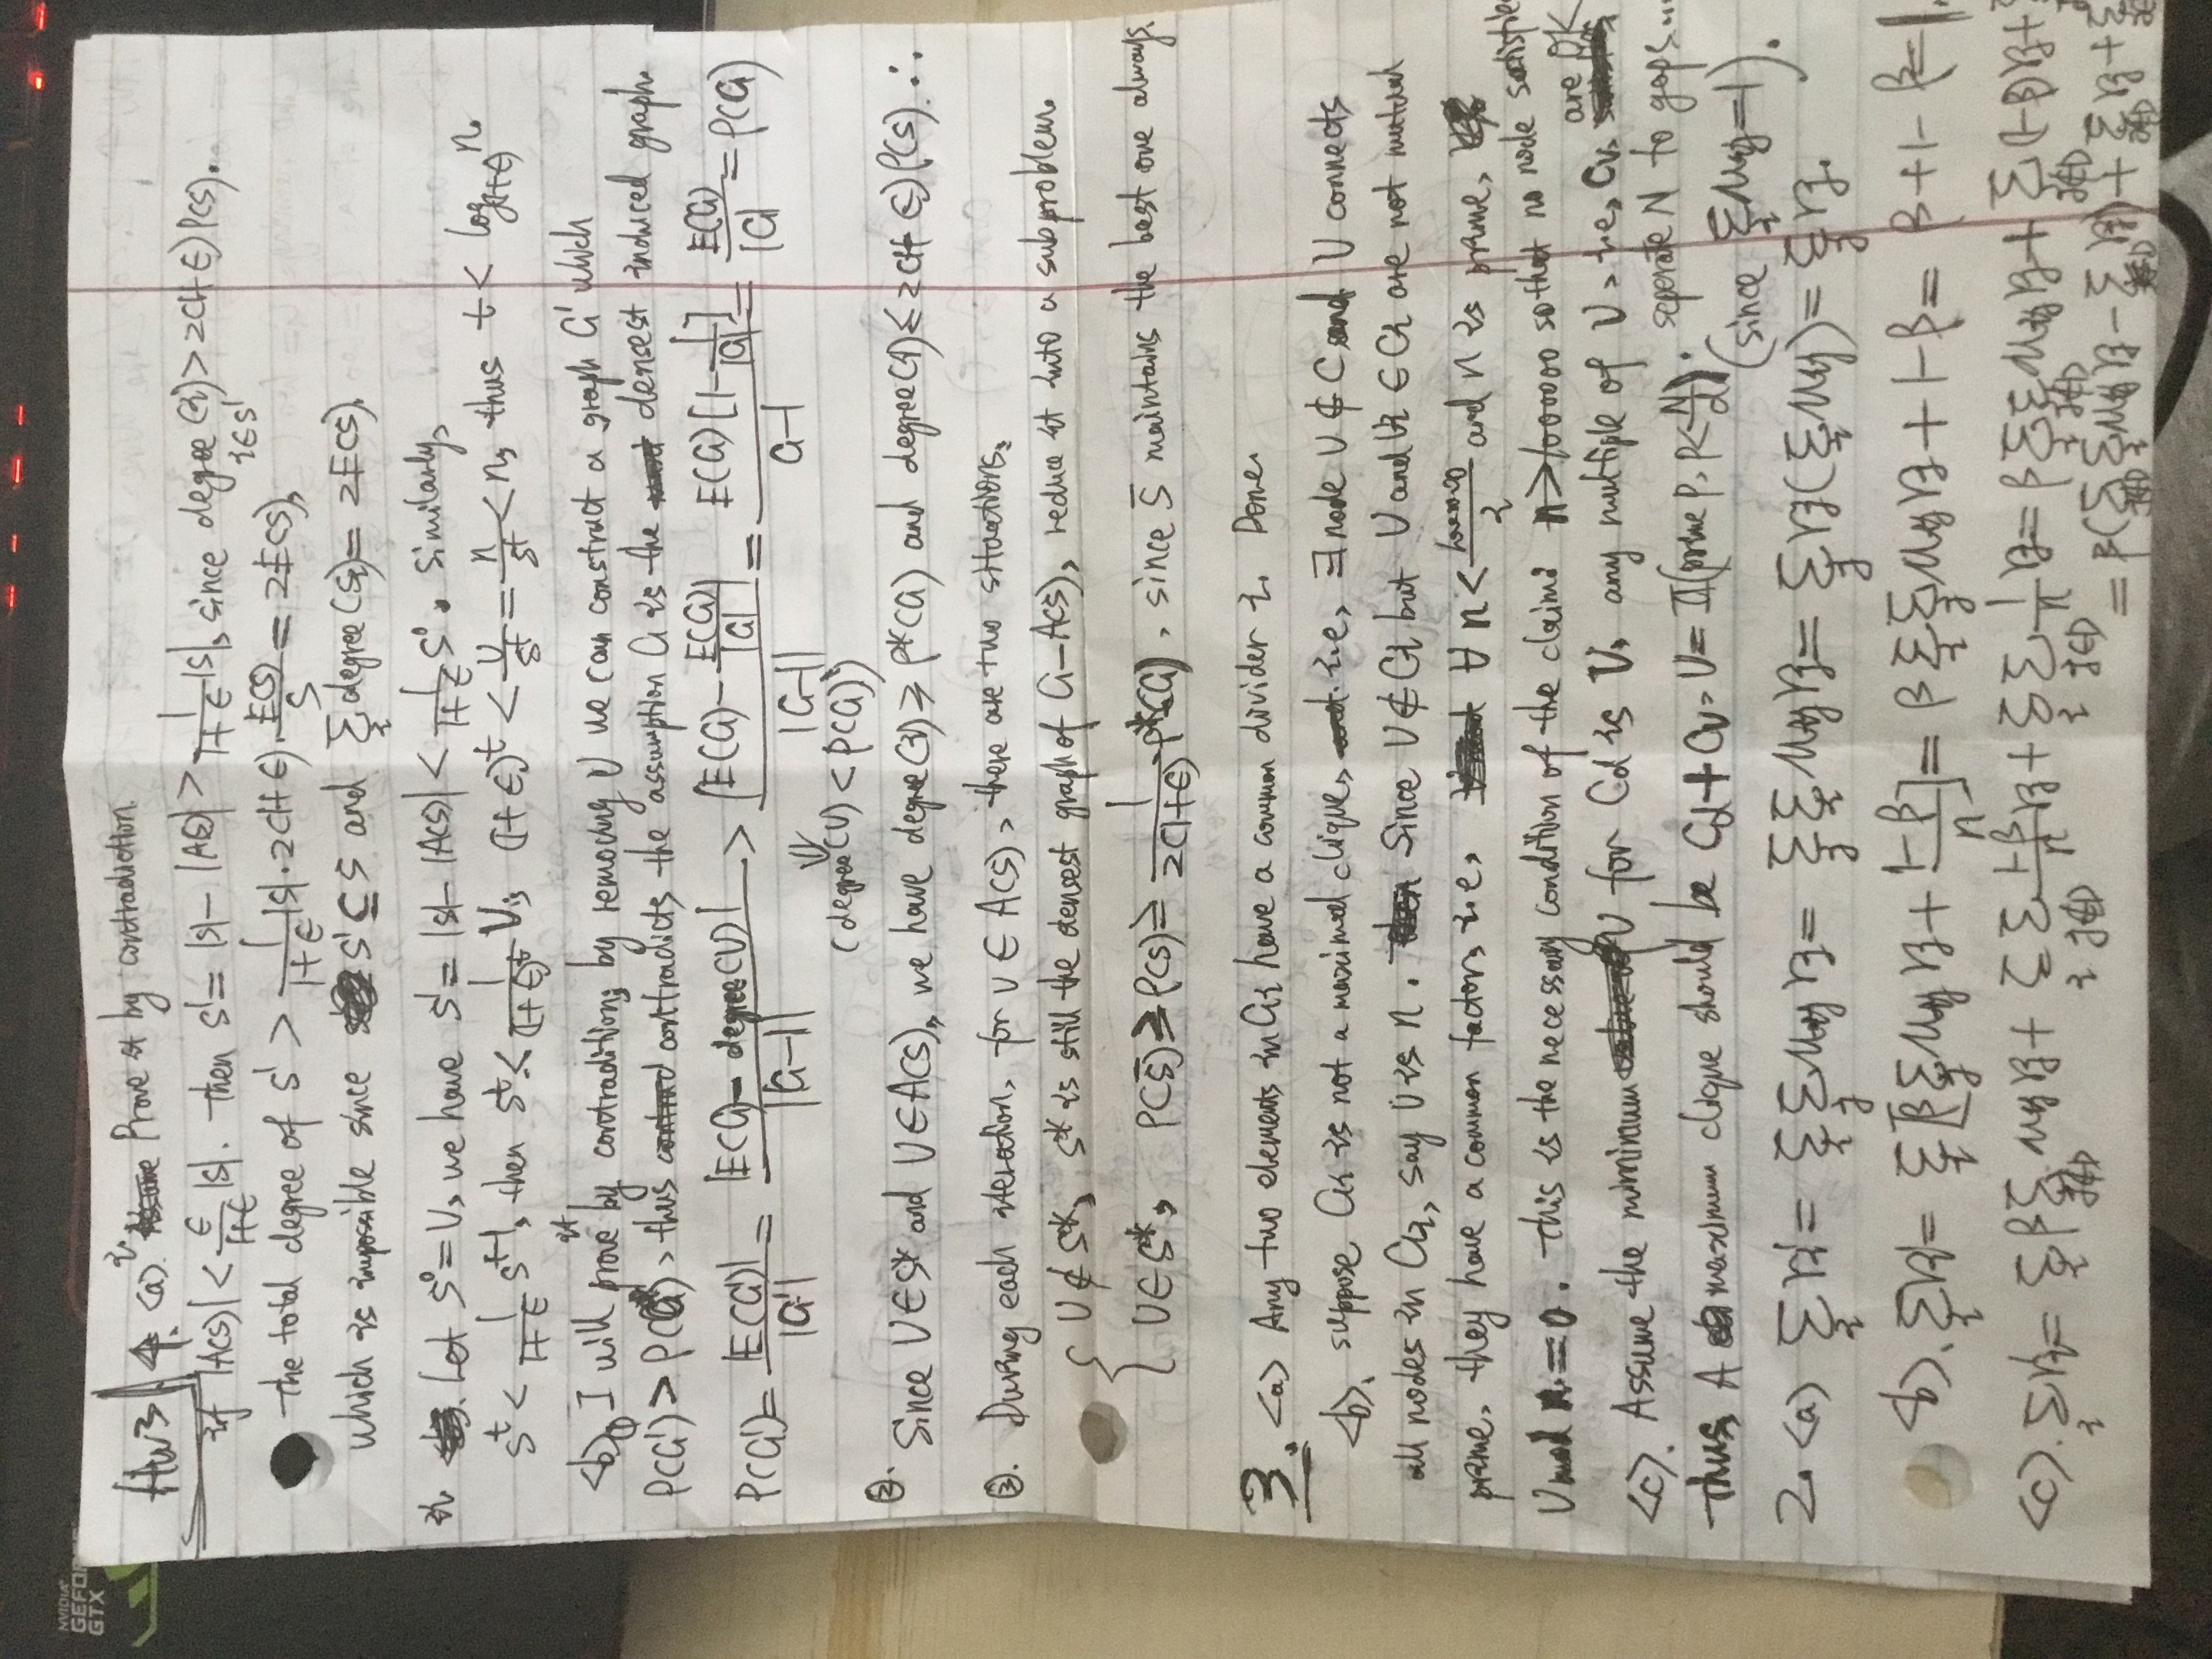 NVIDIA
GEFO
GTX
HW3 4. <a> i. Prove it by contradiction.
if |A(S)| < ε/(1+ε) |S|. Then S' = |S| - |A(S)| > 1/(1+ε) |S|, since degree(i) > 2(1+ε)ρ(S).
i∈S'
The total degree of S' > 1/(1+ε) |S| · 2(1+ε) · E(S)/S = 2E(S),
which is impossible since S' ⊆ S and Σ_i degree(S_i) = 2E(S).
ii. Let S^0 = V, we have S' = |S| - |A(S)| < 1/(1+ε) S^0. Similarly,
S^t < 1/(1+ε) S^{t-1}, then S^t < 1/(1+ε)^t V, (1+ε)^t < V/S^t = n/S^t < n, thus t < log_{(1+ε)} n.
<b> ① I will prove it by contradition, by removing V we can construct a graph G' which
ρ(G') > ρ(G), thus contradicts the assumption G is the densest induced graph.
ρ(G') = |E(G')|/|G'| = |E(G) - degree(V)|/|G-1| > |E(G) - E(G)/|G||/|G-1| = E(G)[1 - 1/|G|]/G-1 = E(G)/|G| = ρ(G)
(degree(V) < ρ(G))
②. Since V∈S* and V∈A(S), we have degree(i) ≥ ρ*(G) and degree(i) ≤ 2(1+ε)ρ(S). ∴
③. During each iteration, for v ∈ A(S), there are two situations.
V∉S*, S* is still the densest graph of G-A(S), reduce it into a subproblem.
V∈S*, ρ(S̄) ≥ ρ(S) ≥ 1/(2(1+ε)) ρ*(G), since S̄ maintains the best one always.
3. <a> Any two elements in C_i have a common divider i. Done.
<b>. suppose C_i is not a maximal clique, i.e, ∃ node V ∉ C and V connects
all nodes in C_i, say V is n. Since V ∉ C_i but V and V_i ∈ C_i are not mutual
prime, they have a common factor, i.e, ∀ n < 1000000/i and n is prime,
V mod n = 0. This is the necessary condition of the claim: n > 1000000 so that no node satisfie
<c>. Assume the miminum V for C_d is V, any multiple of V, i.e, C_v, are OK
thus, A maximum clique should be C_d + C_v, V = Π(prime p, p < N/d). seperate N to gaps...
2. <a> Σ_i r_i' = Σ_i Σ_j M_ij r_j = Σ_j Σ_i M_ij r_j = Σ_j r_j (Σ_i M_ij) = Σ_j r_j. (since Σ_i M_ij = 1).
<b>. Σ_i r_i' = Σ_i [β Σ_j M_ij r_j + (1-β)/n] = β Σ_i Σ_j M_ij r_j + 1-β = β + 1-β = 1.
<c>. Σ_i r_i' = Σ_i β Σ_{j∉D} M_ij r_j + Σ_i Σ_{j∉D} (1-β)/n r_j + Σ_i Σ_{j∈D} 1/n r_j = β Σ_i Σ_{j∉D} M_ij r_j + Σ_{j∉D} (1-β) r_j +